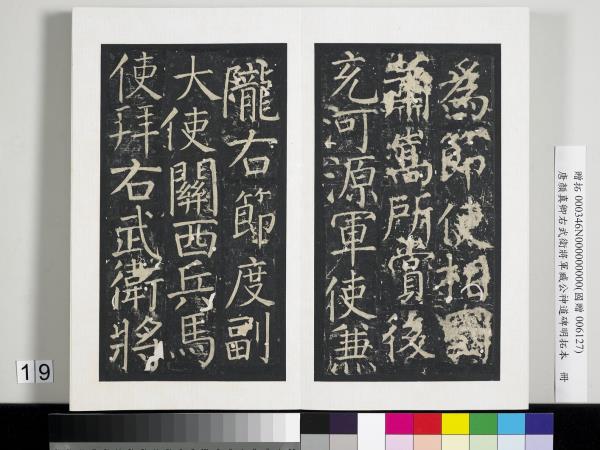 為節使相國
蕭嵩所賞後
充河源軍使兼
隴右節度副
大使關西兵馬
使拜右武衛將
贈拓 000346N000000000(國贈 006127)
唐顏真卿右武衛將軍臧公神道碑明拓本 冊
19